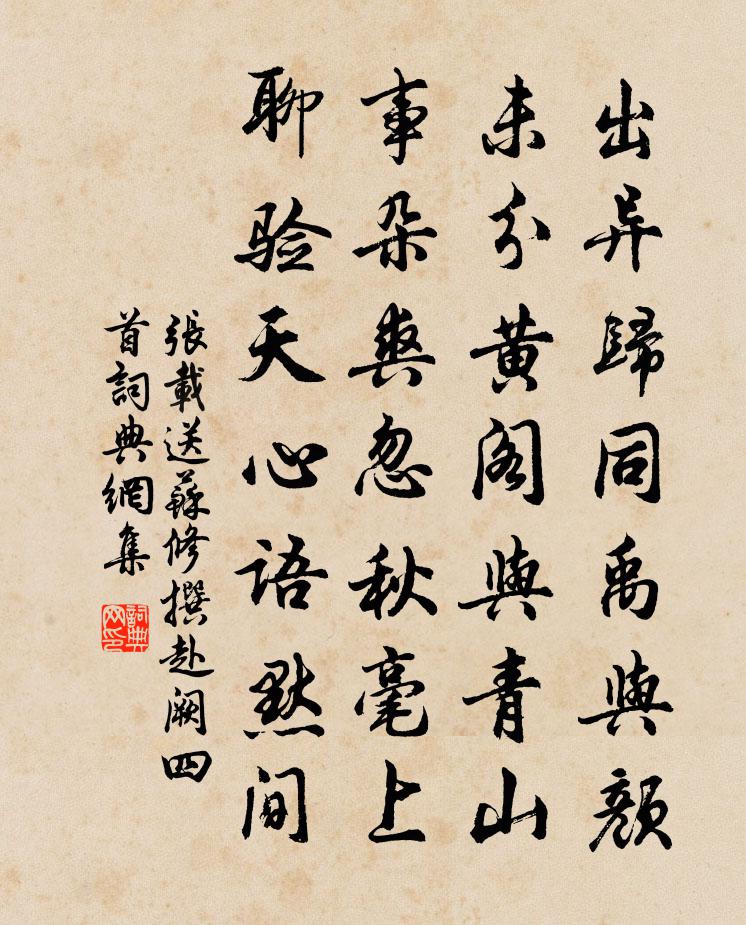 出异歸同禹與顏
未分黄阁與青山
事朵爽忽秋毫上
聊验天心语默间
張載送蘇修撰赴阙四
首詞典網集
詞典網印